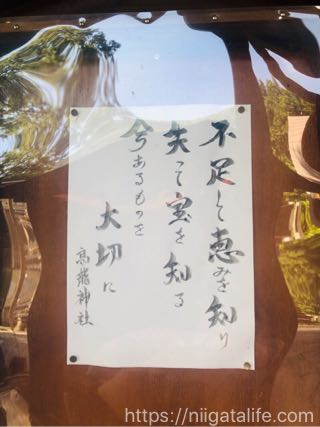 不足して恵みを知り
失って宝を知る
今あるものを
大切に
高龍神社
https://niigatalife.com